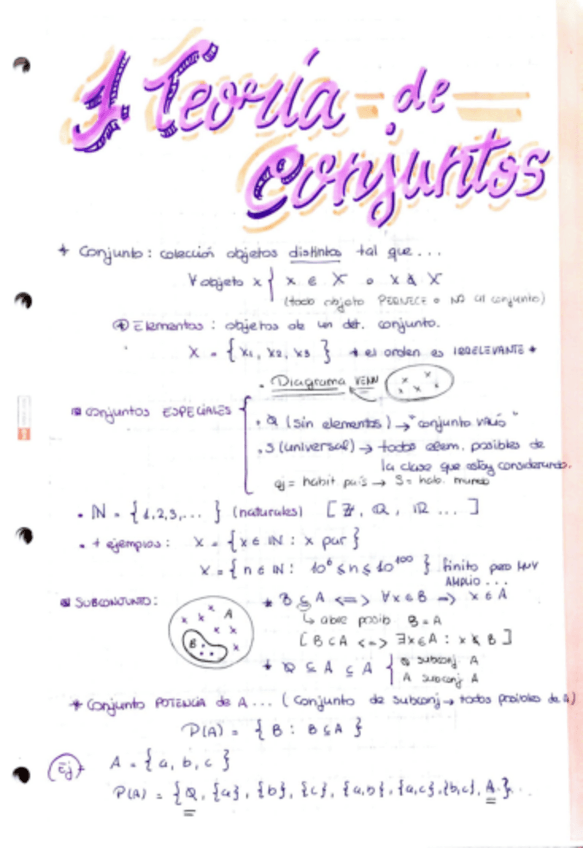 1 Teoría de
Conjuntos
* Conjunto: colección objetos distintos tal que...
∀ objeto x { x ∈ X o x ∉ X
(todo objeto PERNECE o NO al conjunto)
* Elementos: objetos de un det. conjunto.
X = { x₁, x₂, x₃ } * el orden es IRRELEVANTE *
• Diagrama VENN
Conjuntos ESPECIALES
• Ø (sin elementos) → "conjunto vacío"
• S (universal) → todos elem. posibles de
la clase que estoy considerando.
ej = habit país → S = hab. mundo
• IN = {1,2,3,... } (naturales) [ Z, Q, IR ... ]
• + ejemplos: X = { x ∈ IN : x par }
X = { n ∈ IN : 10⁶ ≤ n ≤ 10¹⁰⁰ } finito pero MUY
AMPLIO...
SUBCONJUNTO: A B
* B ⊆ A <=> ∀x ∈ B => x ∈ A
↳ abre posib B = A
[ B ⊂ A <=> ∃x ∈ A : x ∉ B ]
* Ø ⊆ A ⊆ A { Ø subconj A
A subconj A
* Conjunto POTENCIA de A... (conjunto de subconj → todos posibles de A)
P(A) = { B : B ⊆ A }
Ej * A = { a, b, c }
P(A) = { Ø, {a}, {b}, {c}, {a,b}, {a,c}, {b,c}, A }.